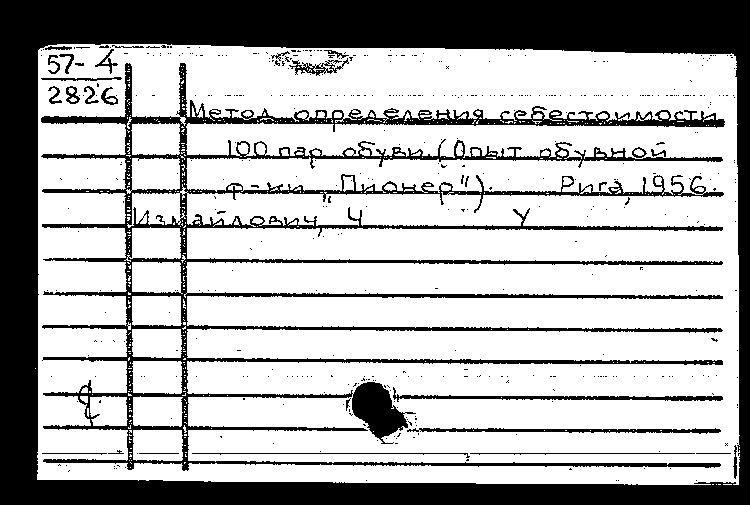 57-4
2826
Метод определения себестоимости
100 пар обуви. (Опыт обувной
ф-ки „Пионер"). Рига, 1956.
Измайлович, Ч У